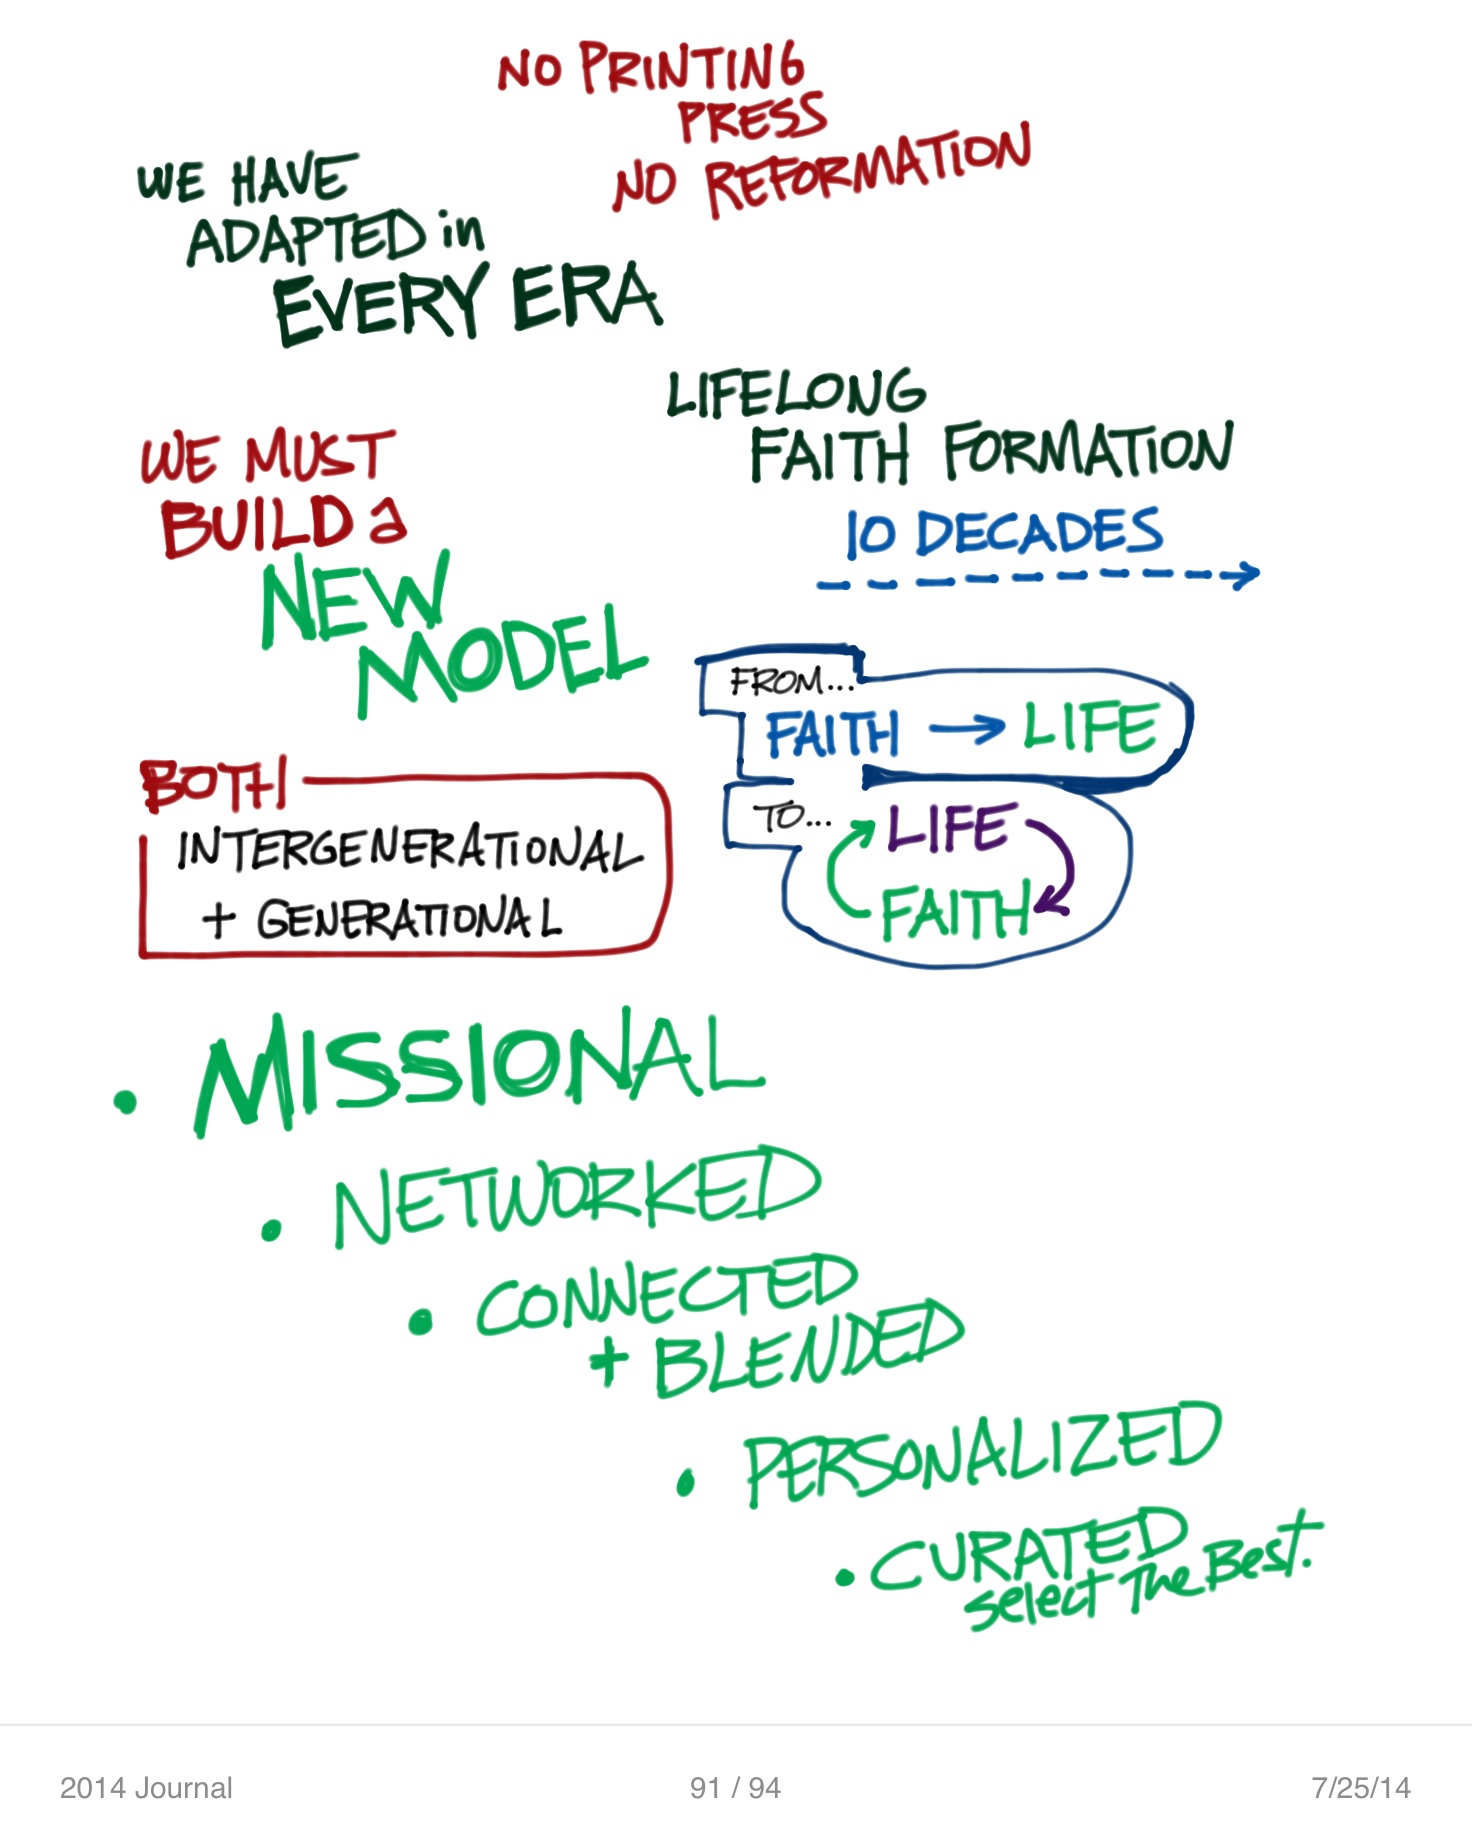 NO PRINTING
PRESS
NO REFORMATION
WE HAVE
ADAPTED in
EVERY ERA
LIFELONG
FAITH FORMATION
10 DECADES
WE MUST
BUILD a
NEW
MODEL
FROM...
FAITH → LIFE
TO...
LIFE
FAITH
BOTH
INTERGENERATIONAL
+ GENERATIONAL
• MISSIONAL
• NETWORKED
• CONNECTED
+ BLENDED
• PERSONALIZED
• CURATED
select The Best.
2014 Journal
91 / 94
7/25/14